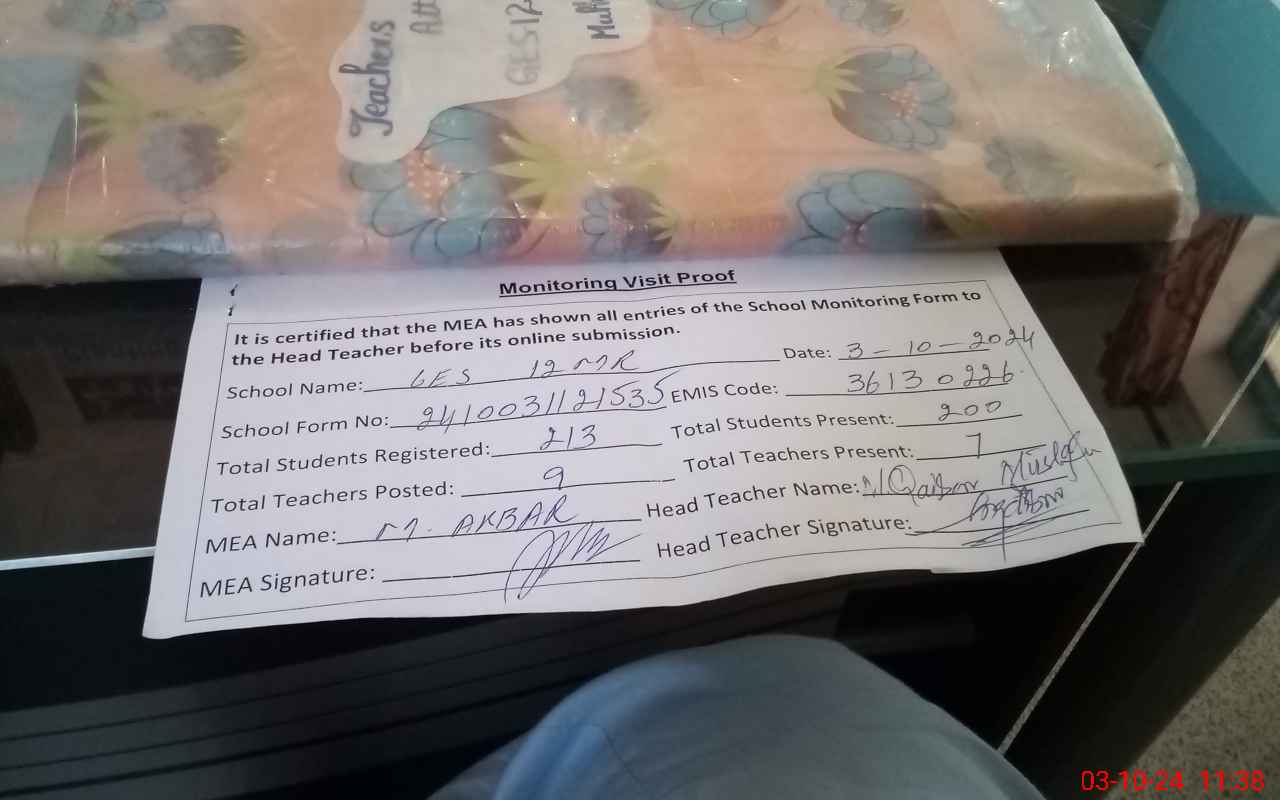 Teachers
Att
GES12
Monitoring Visit Proof
It is certified that the MEA has shown all entries of the School Monitoring Form to
the Head Teacher before its online submission.
School Name: GES 12 MR Date: 3-10-2024
School Form No: 2410031121535 EMIS Code: 36130226
Total Students Registered: 213 Total Students Present: 200
Total Teachers Posted: 9 Total Teachers Present: 7
MEA Name: M. AKBAR Head Teacher Name: Mustafa
MEA Signature: Head Teacher Signature:
03-10-24 11:38